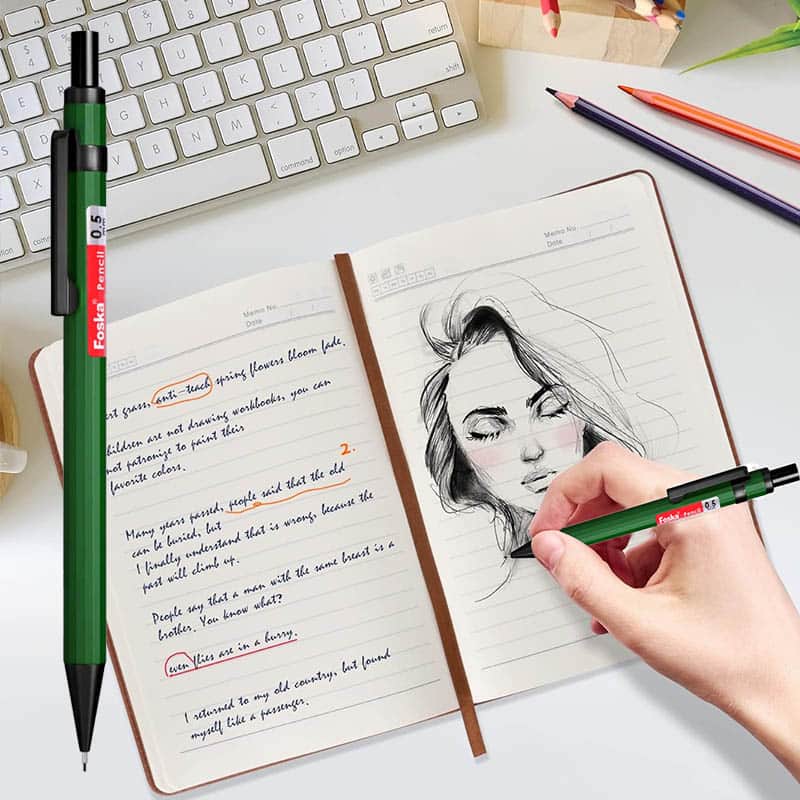 return
shift
command
option
command
0.5
mm
Foska® Pencil
Memo No.
Date / /
Memo No.
Date / /
ert grass, anti-teach spring flowers bloom fade.
hildren are not drawing workbooks, you can
not patronize to paint their
favorite colors.
2.
Many years passed, people said that the old
can be buried, but
I finally understand that is wrong, because the
past will climb up.
People say that a man with the same breast is a
brother. You know what?
even flies are in a hurry.
I returned to my old country, but found
myself like a passenger.
Foska® Pencil 0.5